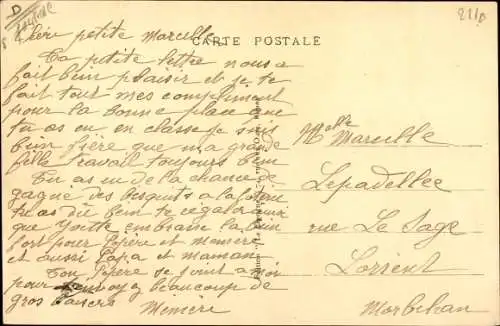 D
2210
CARTE POSTALE
Chère petite Marcelle
Ta petite lettre nous a
fait bien plaisir et je te
fait tout mes compliment
pour la bonne place que
tu as eu en classe je suis
bien fière que ma grande
fille travail toujours bien
Tu as eu de la chance de
gagné des bisquits a la loterie
tu as du bien te régaler ainsi
que Yvette embrasse la bien
fort pour Pépère et mémère
et aussi Papa et maman
Ton Pépère se joint a moi
pour envoyez beaucoup de
gros baisers Mémère
Melle Marcelle
Lepadellec
rue Le Sage
Lorient
Morbihan